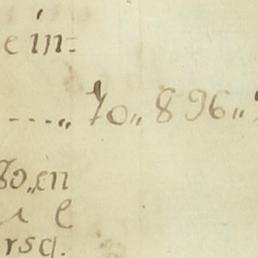 e in:
....„ 70„ 896„
80„en
e
rsq.